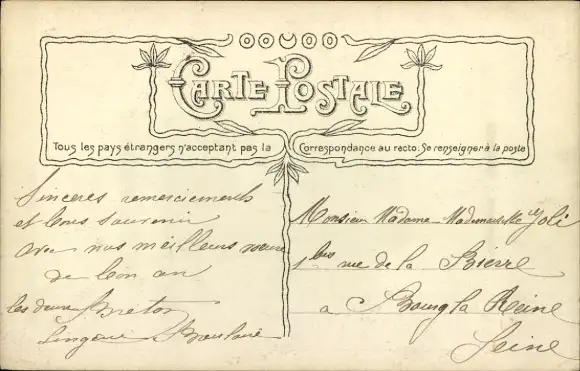 CARTE POSTALE
Tous les pays étrangers n'acceptant pas la Correspondance au recto: Se renseigner à la poste
Sincères remerciements
et bons souvenir
avec nos meilleurs voeux
de bon an
les deux Breton
Monsieur Madame Mademoiselle Joli
1 bis rue de la Bièvre
a Bourg la Reine
Seine